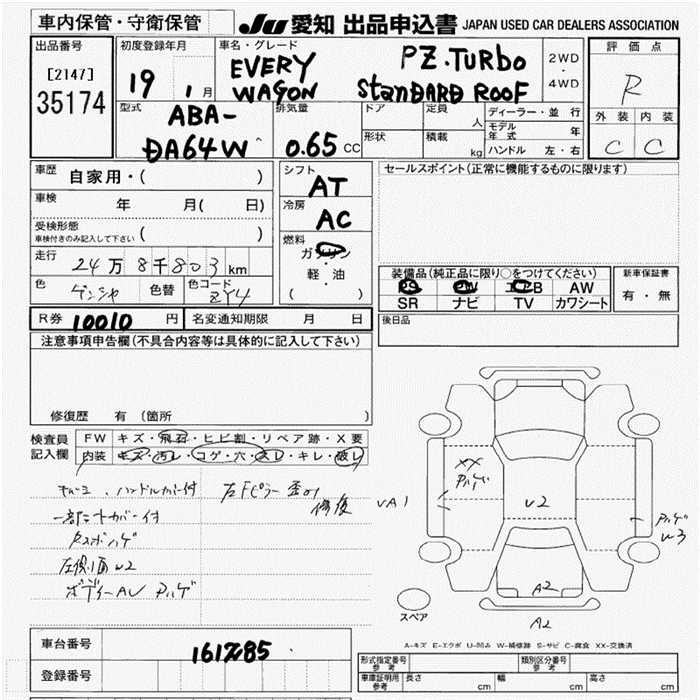 車内保管・守衛保管
JU 愛知 出品申込書 JAPAN USED CAR DEALERS ASSOCIATION
出品番号
[2147]
35174
初度登録年月
19 1月
車名・グレード
EVERY WAGON
PZ.TURBO
STANDARD ROOF
2WD
・
4WD
評価点
R
外装 内装
C C
型式
ABA-
DA64W
排気量
0.65 CC
ドア
定員 人
形状
積載 kg
ディーラー・並行
モデル年式 年
ハンドル 左・右
車歴
自家用・( )
車検
年 月( 日)
受検形態
車検付きのみ記入して下さい ( )
走行
24万8千803km
色 ゲンシャ
色替
色コード ZY4
シフト
AT
冷房
AC
燃料
ガソリン
・
軽・油
( )
セールスポイント(正常に機能するものに限ります)
装備品(純正品に限り○をつけてください)
PS PW エアB AW
SR ナビ TV カワシート
新車保証書
有・無
後日品
R券 10010 円
名変通知期限 月 日
注意事項申告欄(不具合内容等は具体的に記入して下さい)
修復歴 有(箇所 )
検査員記入欄
FW キズ・飛石・ヒビ割・リペア跡・X要
内装 キズ・汚レ・コゲ・穴・スレ・キレ・破レ
ハンドルカバー付
左Fピラー歪み
修復
一部シートカバー付
左側面U2
ボディーAU Pハゲ
XX
Pハゲ
UA1
U2
Pハゲ
U3
A2
A2
スペア
A-キズ E-エクボ U-凹み W-補修跡 S-サビ C-腐食 XX-交換済
車台番号
登録番号
形式指定番号 参考
類別区分番号 参考
車庫証明用 参考
長さ cm
幅 cm
高さ cm